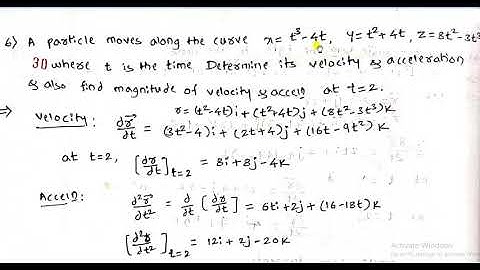 6) A particle moves along the curve x = t³-4t, y = t²+4t, z = 8t²-3t³
30 where t is the time Determine its velocity & acceleration
& also find magnitude of velocity & acceln at t=2.
⇒ r = (t²-4t)i + (t²+4t)j + (8t²-3t³)k
Velocity: dr/dt = (3t²-4)i + (2t+4)j + (16t-9t²)k
at t=2, [dr/dt]t=2 = 8i+8j-4k
Acceln: d²r/dt² = d/dt [dr/dt] = 6ti+2j+(16-18t)k
[d²r/dt²]t=2 = 12i+2j-20k
Activate Windows